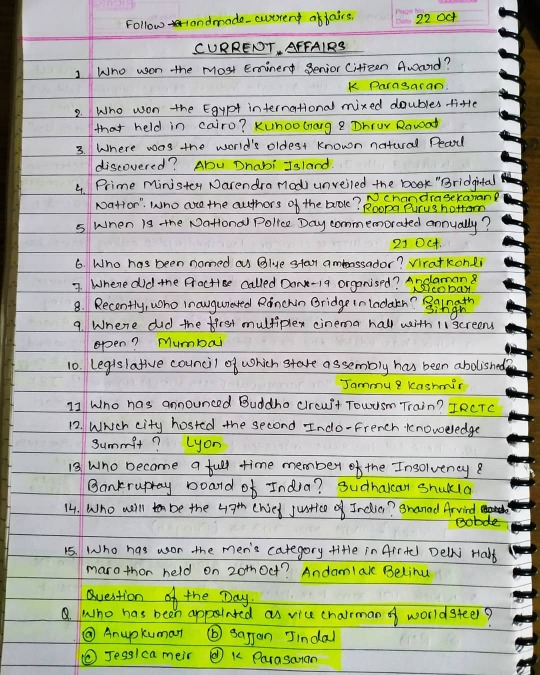 Follow Handmade-current affairs.
Page No.
Date 22 Oct
CURRENT AFFAIRS
1. Who won the Most Eminent Senior Citizen Award?
K Parasaran.
2. Who won the Egypt international mixed doubles title
that held in cairo? Kuhoo Garg & Dhruv Rawat
3. Where was the world's oldest known natural Pearl
discovered? Abu Dhabi Island.
4. Prime Minister Narendra Modi unveiled the book "Bridgital
Nation". Who are the authors of the book? N chandrasekaran &
Roopa Purushottam
5. When is the National Police Day commemorated annually?
21 Oct.
6. Who has been named as Blue star ambassador? Virat Kohli
7. Where did the Practise called Danx-19 organised? Andaman &
Nicobar
8. Recently, who inaugurated Rinchin Bridge in Ladakh? Rajnath
Singh
9. Where did the first multiplex cinema hall with 11 screens
open? Mumbai
10. Legislative council of which state assembly has been abolished?
Jammu & Kashmir
11 Who has announced Buddha circuit Tourism Train? IRCTC
12. Which city hosted the second Indo-French knowledge
Summit? Lyon
13 Who became a full time member of the Insolvency &
Bankruptcy board of India? Sudhakar Shukla
14. Who will be the 47th chief justice of India? Sharad Arvind
Bobde
15. Who has won the Men's category title in Airtel Delhi Half
Marathon held on 20th Oct? Andamlak Belihu
Question of the Day.
Q. Who has been appointed as vice chairman of worldsteel?
(a) Anupkumar (b) Sajjan Jindal
(c) Jessica meir (d) K Parasaran